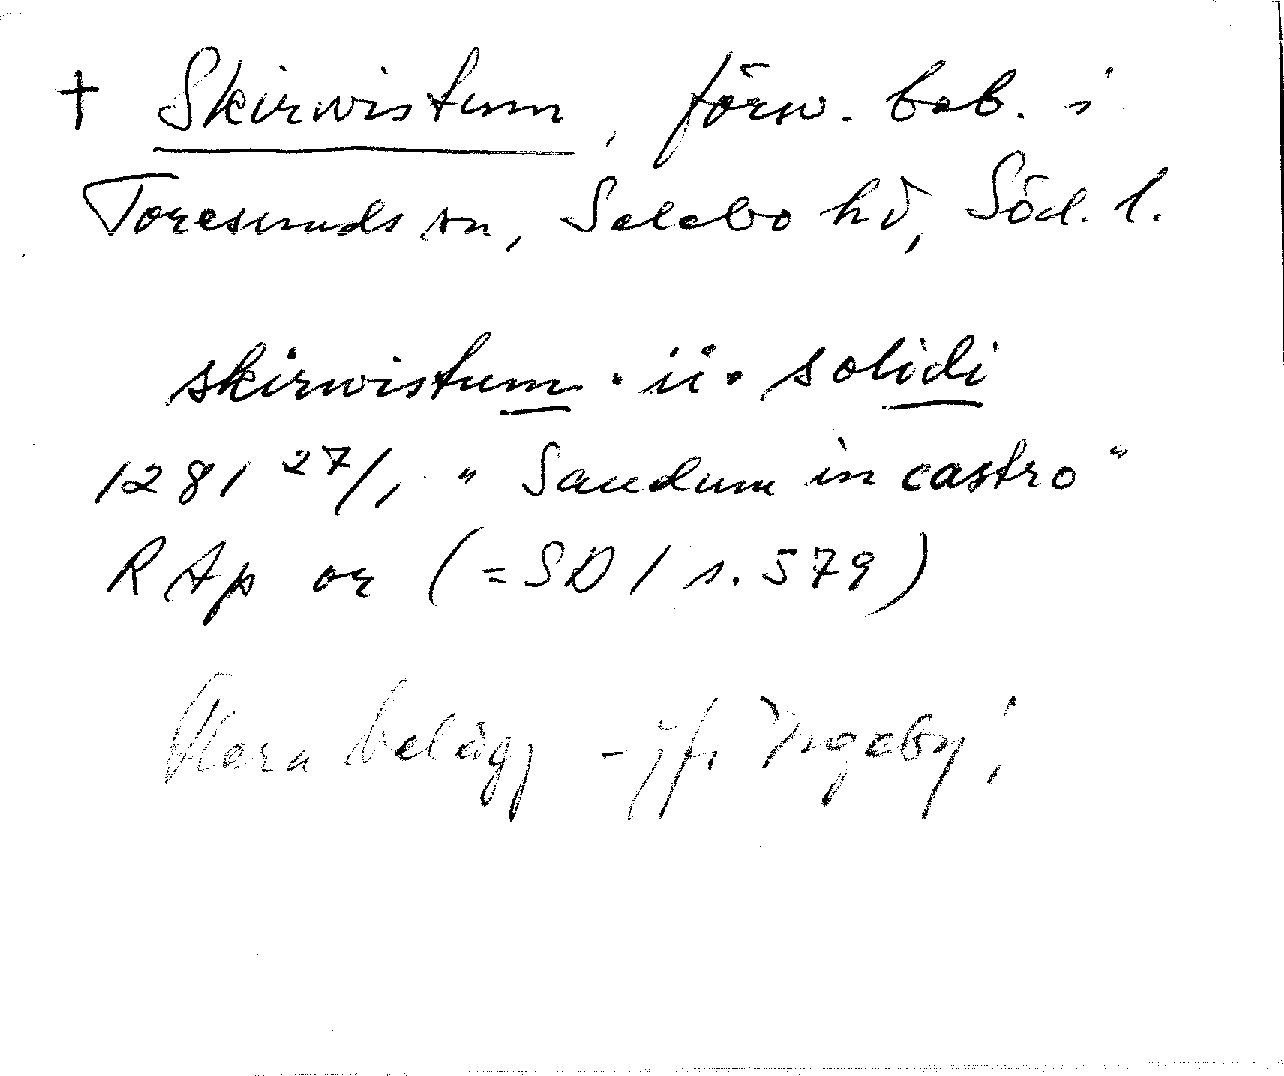 † Skirwistum, förw. beb. i
Toresunds sn, Selebo hd, Söd. l.
skirwistum · ii · solidi
1281 27/1 "Sandum in castro"
RAp or (= SD 1 s. 579)
Flera belägg - jfr Ingeby!